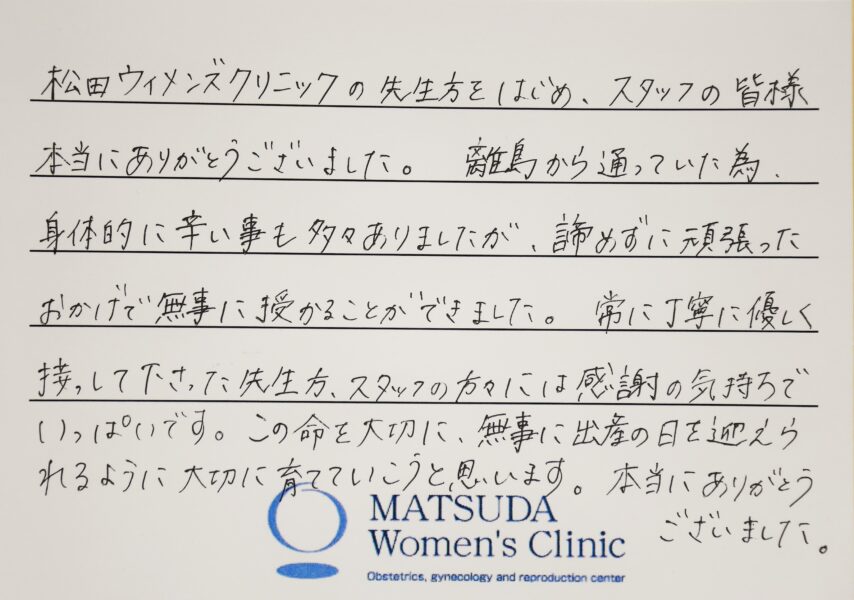 松田ウィメンズクリニックの先生方をはじめ、スタッフの皆様
本当にありがとうございました。 離島から通っていた為、
身体的に辛い事も多々ありましたが、諦めずに頑張った
おかげで無事に授かることができました。 常に丁寧に優しく
接っして下さった先生方、スタッフの方々には感謝の気持ちで
いっぱいです。この命を大切に、無事に出産の日を迎えら
れるように大切に育てていこうと思います。本当にありがとう
ございました。
MATSUDA
Women's Clinic
Obstetrics, gynecology and reproduction center